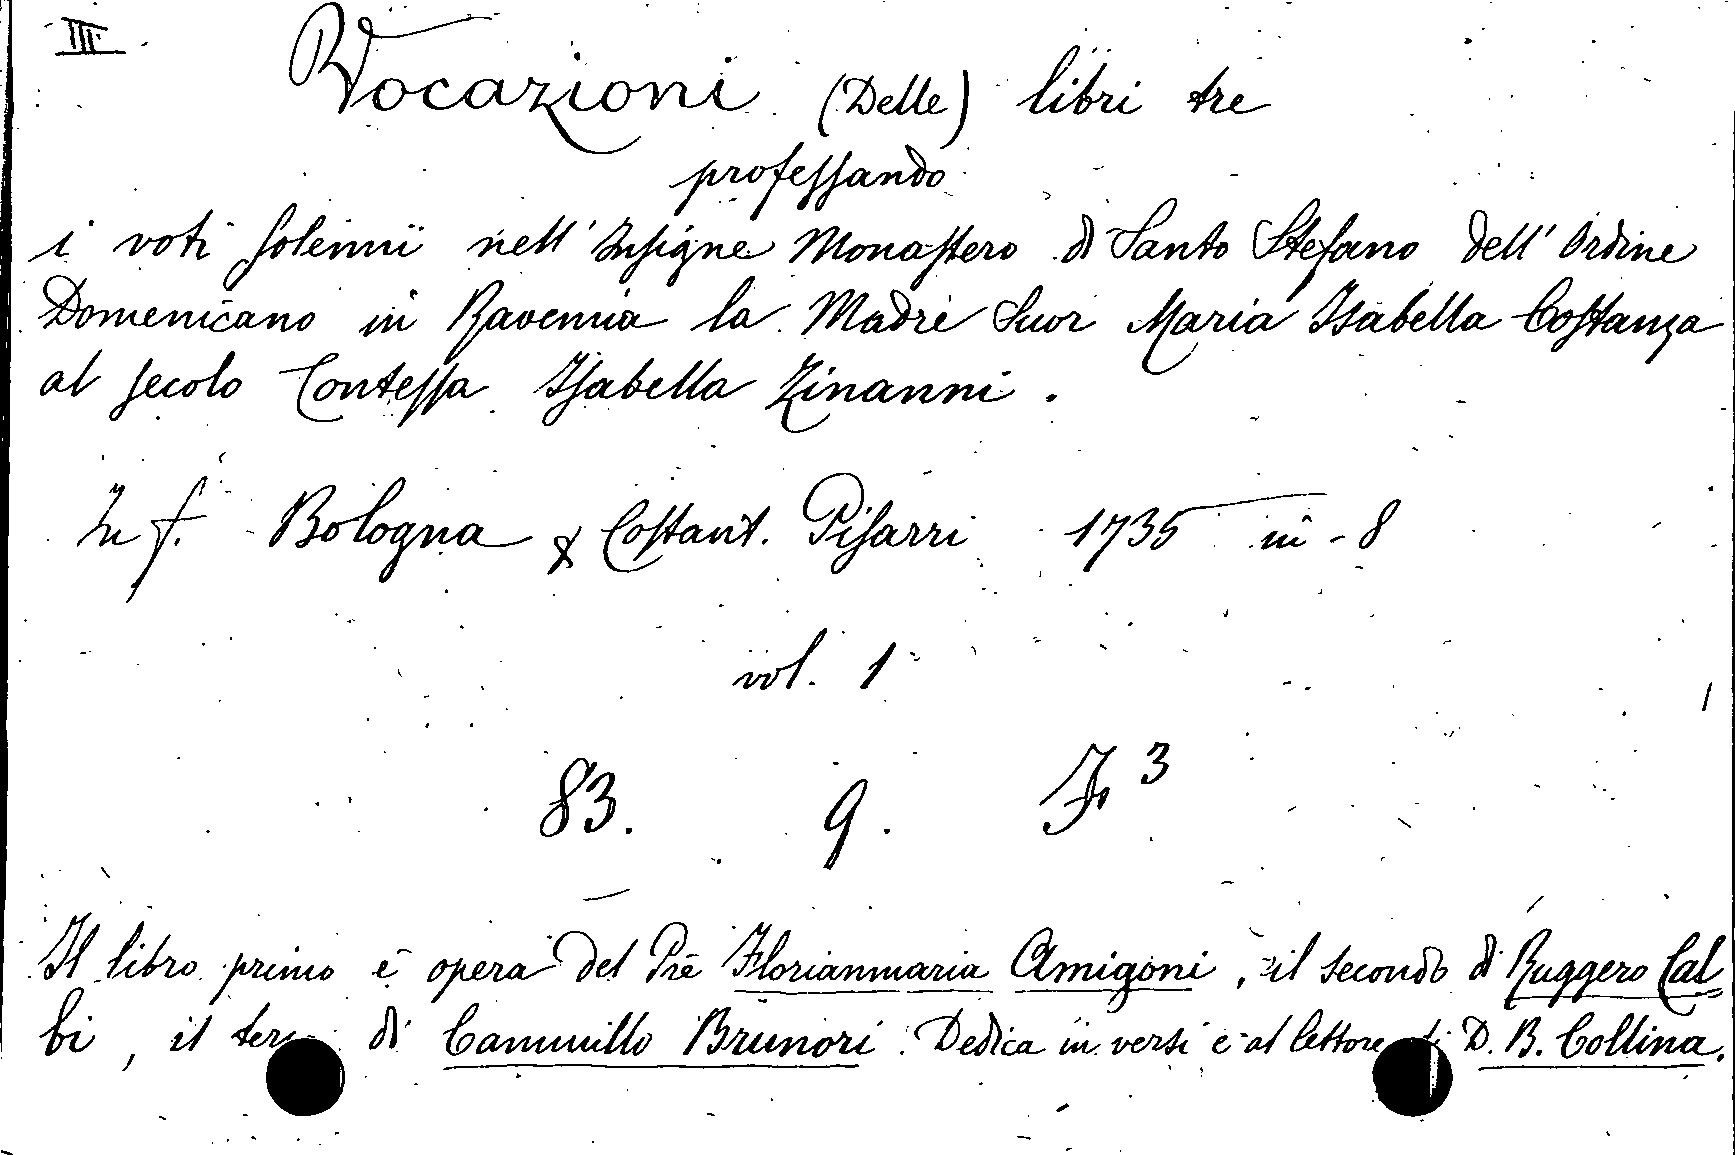 III.
Vocazioni (Delle) libri tre
professando
i voti solenni nell' Insigne Monastero di Santo Stefano dell' Ordine
Domenicano in Ravenna la Madre Suor Maria Isabella Costanza
al secolo Contessa Isabella Zinanni.
In f. Bologna Costant. Pisarri 1735 in-8
vol. 1
83. 9. 3
Il libro primo è opera del Pre Florianmaria Amigoni, il secondo di Ruggero Cal
bi, il di Cammillo Brunori. Dedica in versi e al lettore D. B. Collina.